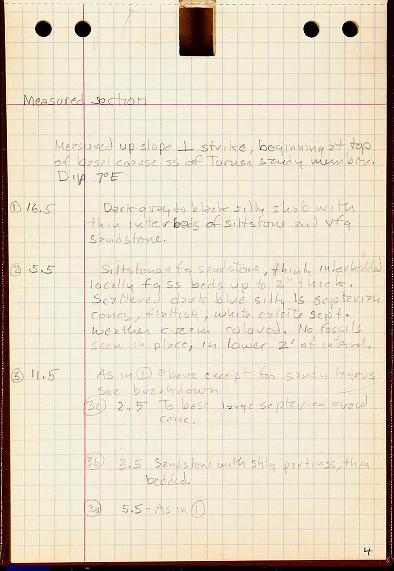 Measured section
Measured up slope ⊥ strike, beginning at top
of basal coarse ss of Turner sandy member.
Dip 7°E
① 16.5 Dark gray to black silty shale with
thin interbeds of siltstone and vfg
sandstone.
② 5.5 Siltstone + fg sandstone, thinly interbedded
locally fg ss beds up to 2" thick.
Scattered dark blue silty ls septarian
concs, flattish, white calcite sept.
weather cream colored. No fossils
seen in place, in lower 2' of interval.
③ 11.5 As in ① above except for sandy layers
see breakdown
3c 2.5 To base large septarian ovoid
conc.
3b 3.5 Sandstone with shly partings, thin
bedded.
3a 5.5 - As in ①
4